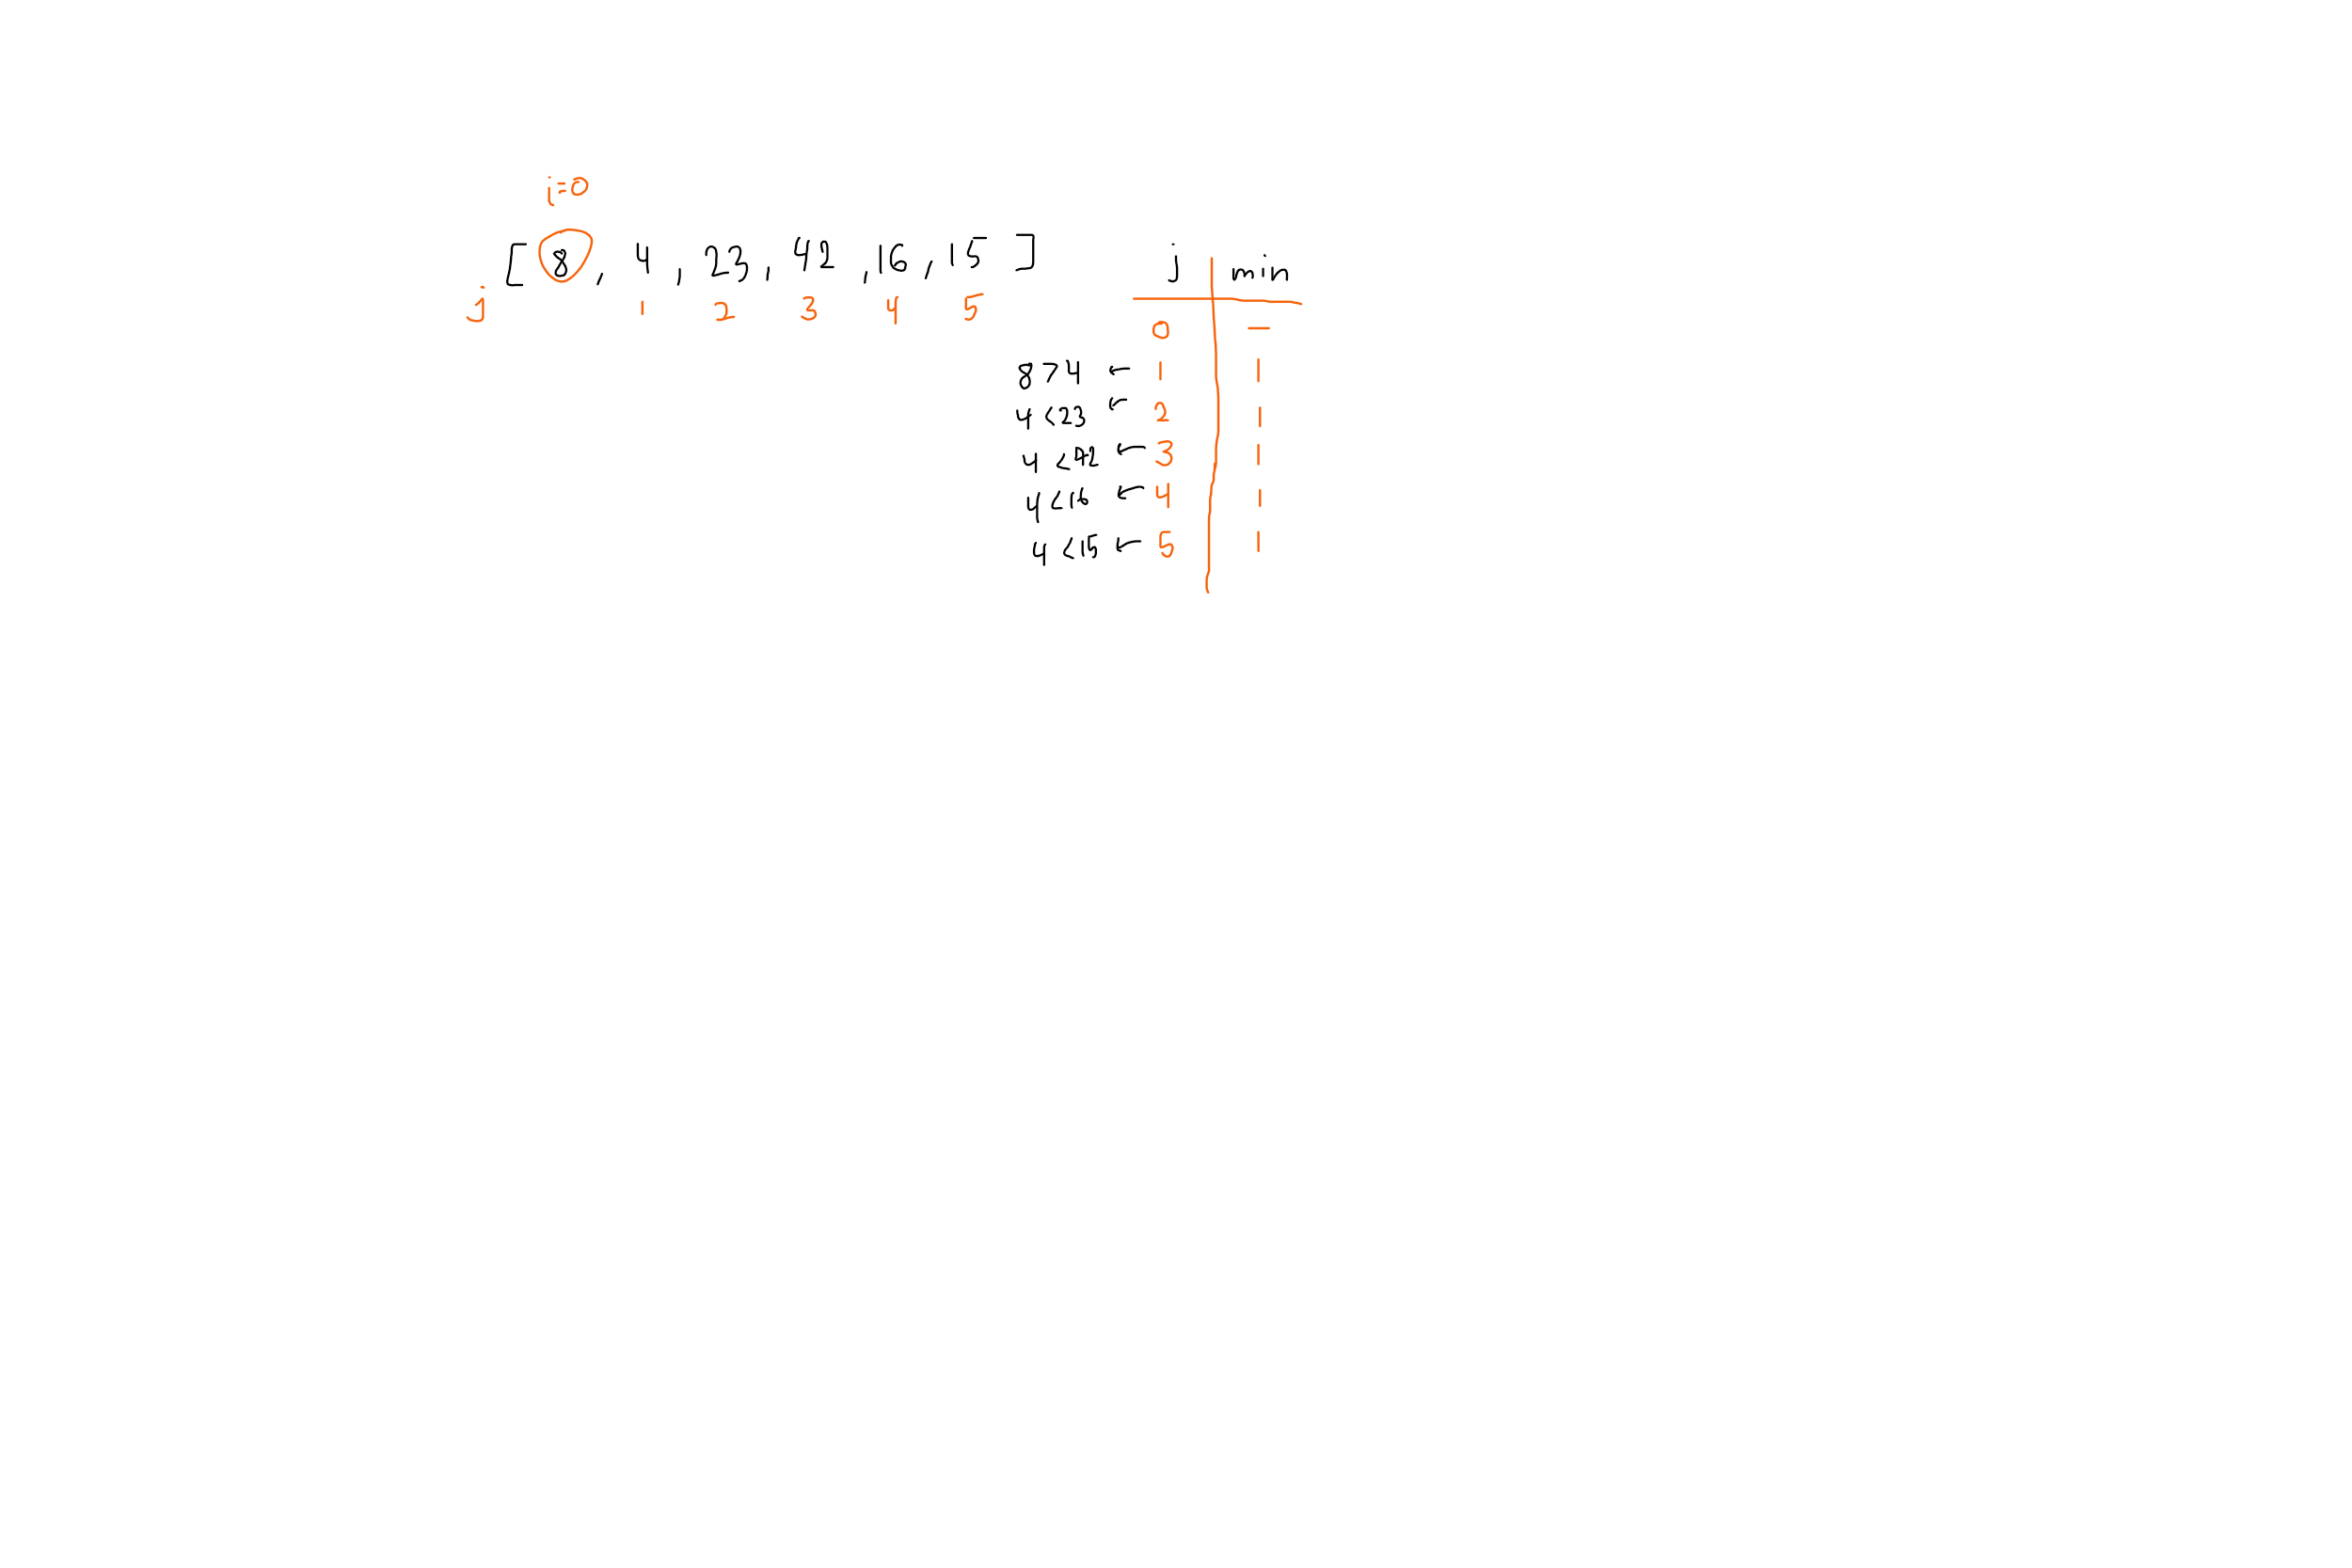 i=0
[ 8 , 4 , 23 , 42 , 16 , 15 ]
j 1 2 3 4 5
j min
0 —
8>4 ← 1 1
4<23 ← 2 1
4<42 ← 3 1
4<16 ← 4 1
4<15 ← 5 1